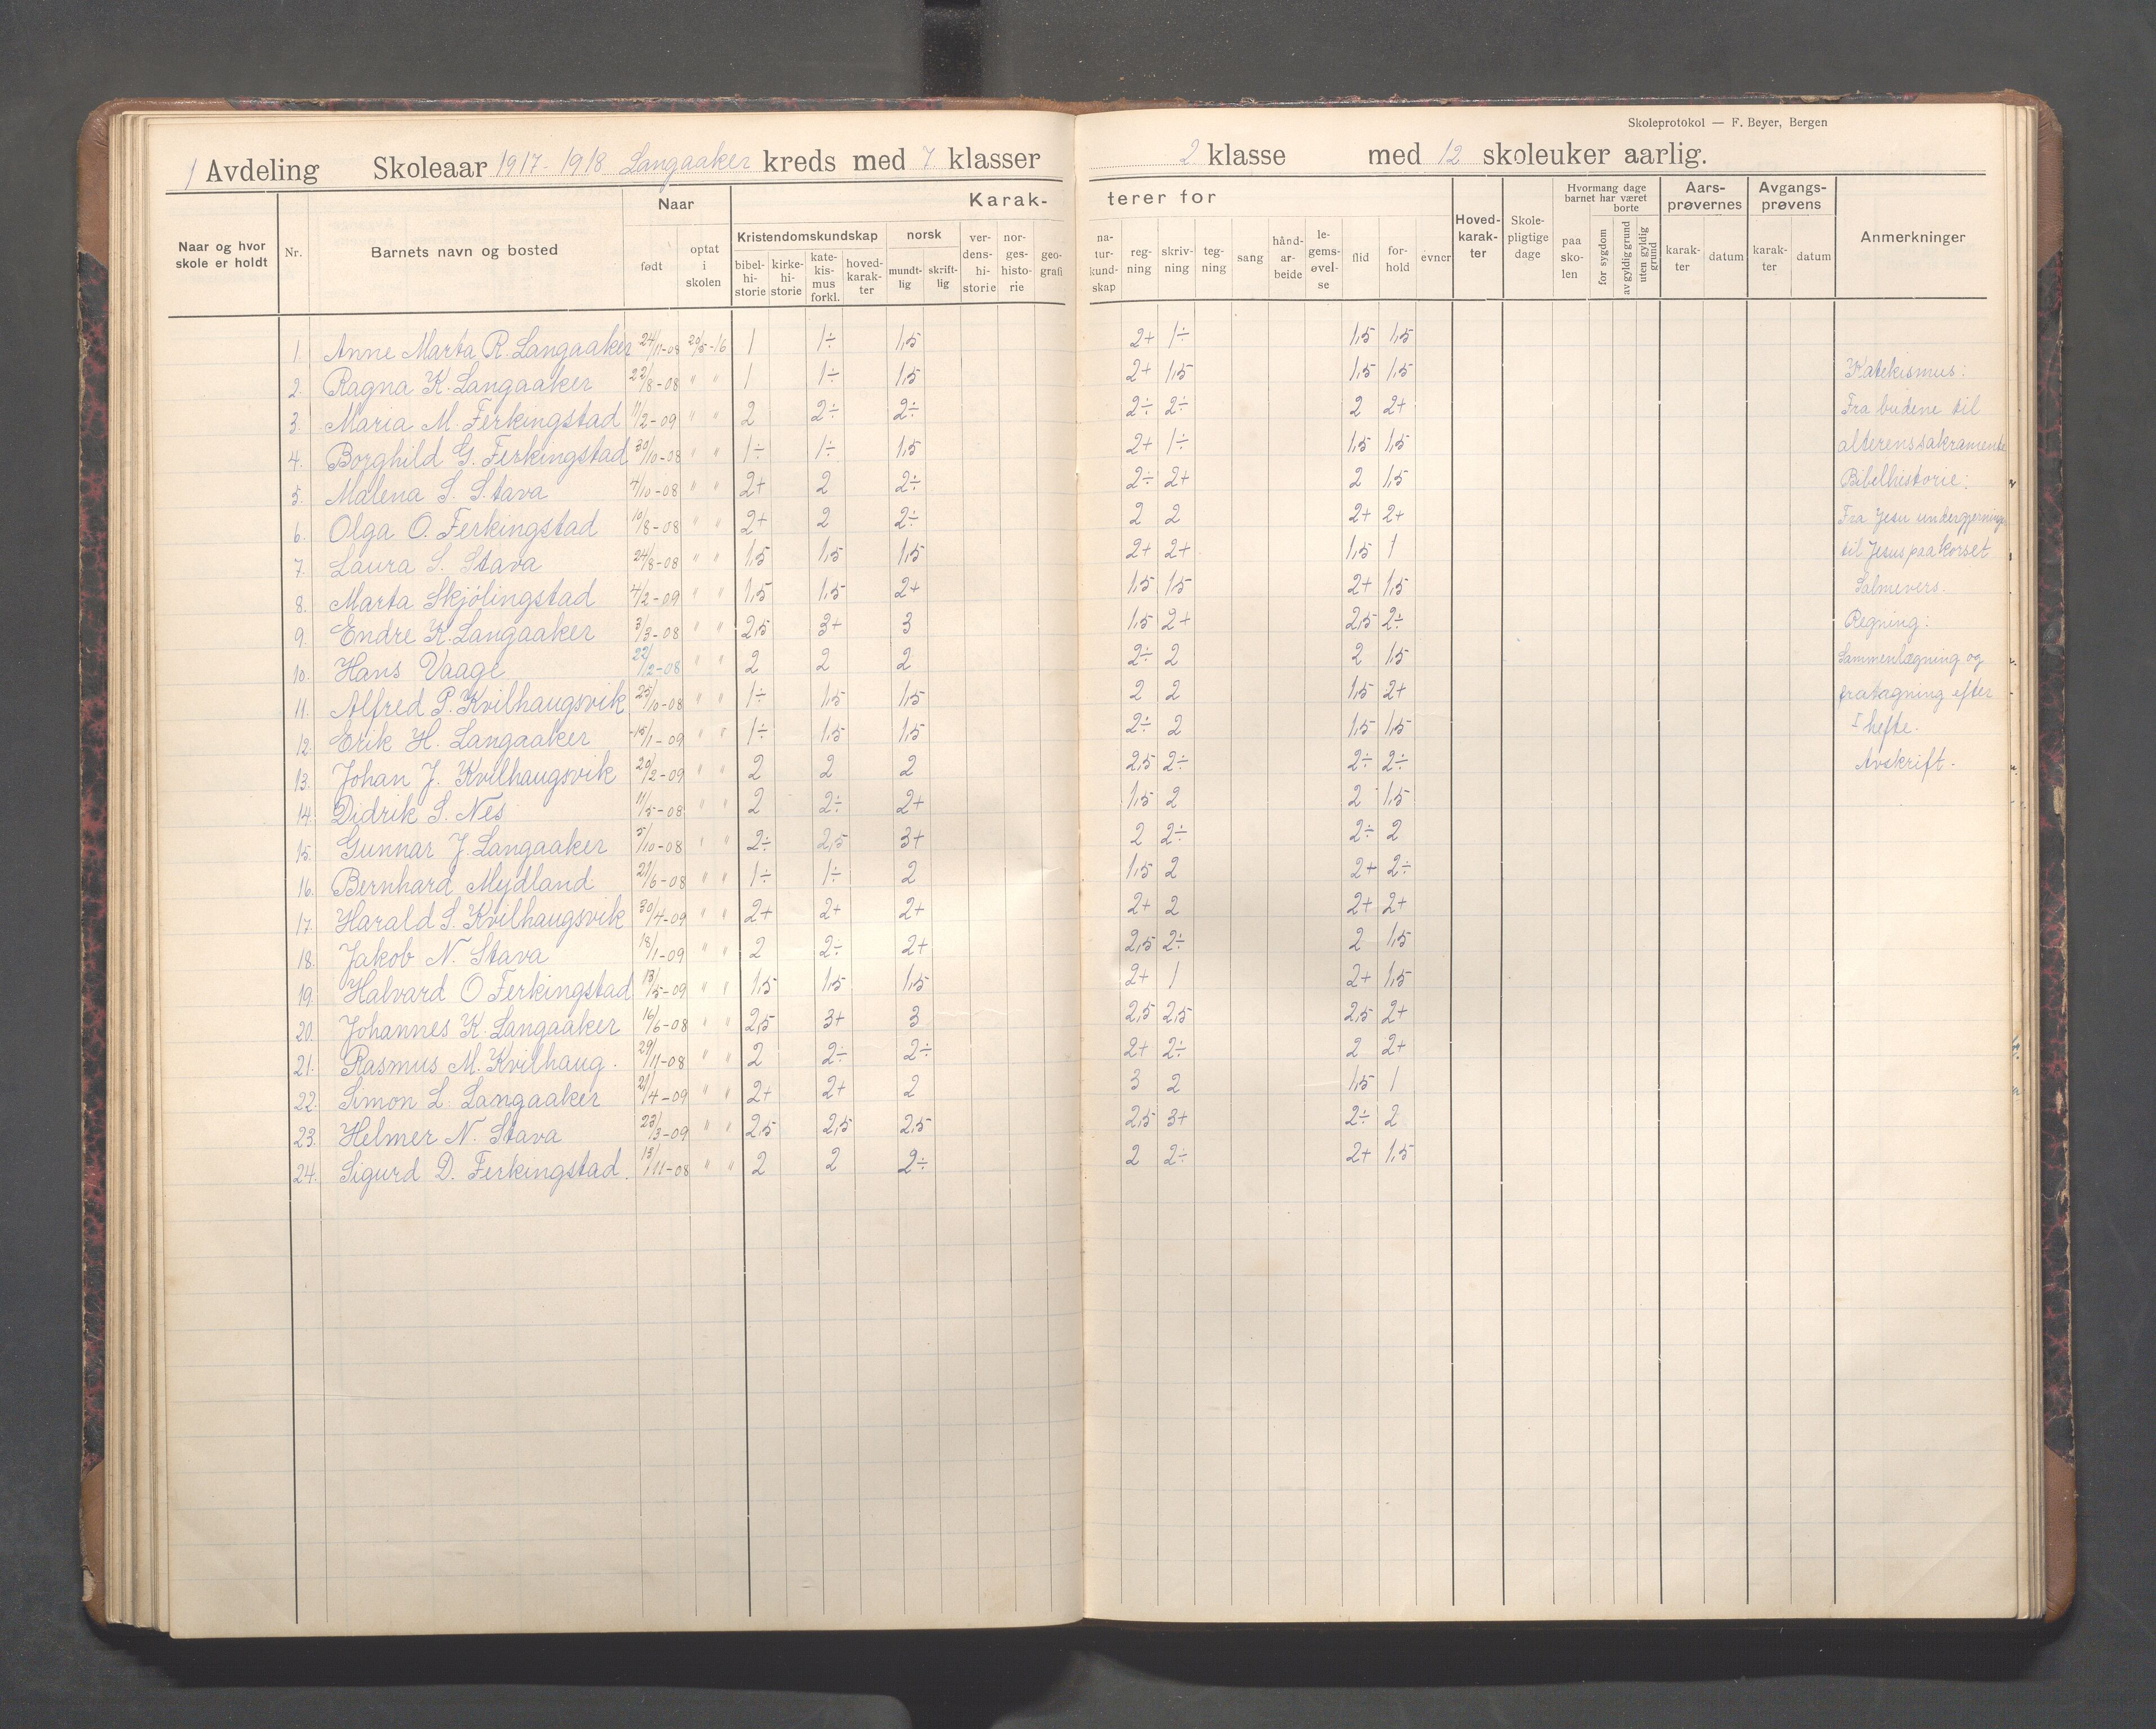 Skoleprotokol — F. Beyer, Bergen
1 Avdeling Skoleaar 1917-1918 Langaaker kreds med 7 klasser 2 klasse med 12 skoleuker aarlig.
Naar og hvor skole er holdt | Nr. | Barnets navn og bosted | Naar | født | optat i skolen | Karakterer for | Kristendomskundskap | bibelhistorie | kirkehistorie | katekismus forkl. | hovedkarakter | norsk | mundtlig | skriftlig | verdenshistorie | norgeshistorie | geografi | naturkundskap | regning | skrivning | tegning | sang | håndarbeide | legemsøvelse | flid | forhold | evner | Hovedkarakter | Skolepligtige dage | Hvormang dage barnet har været borte | paa skolen | for sygdom | av gyldig grund | uten gyldig grund | Aarsprøvernes | karakter | datum | Avgangsprøvens | karakter | datum | Anmerkninger
1. Anne Marta R. Langaaker 24/11-08 20/5-16 1 1÷ 1,5 2+ 1÷ 1,5 1,5
2. Ragna K. Langaaker 22/8-08 " " 1 1÷ 1,5 2+ 1,5 1,5 1,5 Katekismus:
3. Maria M. Ferkingstad 11/2-09 " " 2 2÷ 2÷ 2÷ 2÷ 2 2+ Fra budene til
4. Borghild G. Ferkingstad 30/10-08 " " 1÷ 1÷ 1,5 2+ 1÷ 1,5 1,5 alterenssakramente
5. Malena S. Stava 4/10-08 " " 2+ 2 2÷ 2÷ 2+ 2 1,5 Bibelhistorie:
6. Olga O. Ferkingstad 10/8-08 " " 2+ 2 2÷ 2 2 2+ 2+ Fra Jesu undergjerning
7. Laura S. Stava 24/8-08 " " 1,5 1,5 1,5 2+ 2+ 1,5 1 til Jesus paa korset
8. Marta Skjölingstad 4/2-09 " " 1,5 1,5 2+ 1,5 1,5 2+ 1,5 Salmevers.
9. Endre K. Langaaker 3/3-08 " " 2,5 3+ 3 1,5 2+ 2,5 2÷ Regning:
10. Hans Vaage 22/12-08 " " 2 2 2 2÷ 2 2 1,5 Sammenlægning og
11. Alfred P. Kvilhaugsvik 25/10-08 " " 1÷ 1,5 1,5 2 2 1,5 2+ fratagning efter
12. Erik H. Langaaker 15/1-09 " " 1÷ 1,5 1,5 2÷ 2 1,5 1,5 I hefte.
13. Johan J. Kvilhaugsvik 20/2-09 " " 2 2 2 2,5 2÷ 2÷ 2÷ Avskrift.
14. Didrik S. Nes 11/5-08 " " 2 2÷ 2+ 1,5 2 2 1,5
15. Gunnar J. Langaaker 5/10-08 " " 2÷ 2,5 3+ 2 2÷ 2÷ 2
16. Bernhard Mydland 21/6-08 " " 1÷ 1÷ 2 1,5 2 2+ 2÷
17. Harald S. Kvilhaugsvik 30/4-09 " " 2+ 2+ 2+ 2+ 2 2+ 2+
18. Jakob N. Stava 18/1-09 " " 2 2÷ 2+ 2,5 2÷ 2 1,5
19. Halvard O Ferkingstad 13/5-09 " " 1,5 1,5 1,5 2+ 1 2+ 1,5
20. Johannes K. Langaaker 16/6-08 " " 2,5 3+ 3 2,5 2,5 2,5 2+
21. Rasmus M. Kvilhaug. 29/11-08 " " 2 2÷ 2÷ 2+ 2÷ 2 2+
22. Simon L. Langaaker 21/4-09 " " 2+ 2+ 2 3 2 1,5 1
23. Helmer N. Stava 23/3-09 " " 2,5 2,5 2,5 2,5 3+ 2÷ 2
24. Sigurd D. Ferkingstad. 13/11-08 " " 2 2 2÷ 2 2÷ 2+ 1,5